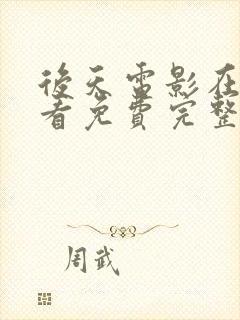 後天雷影在
看免費完整
周武